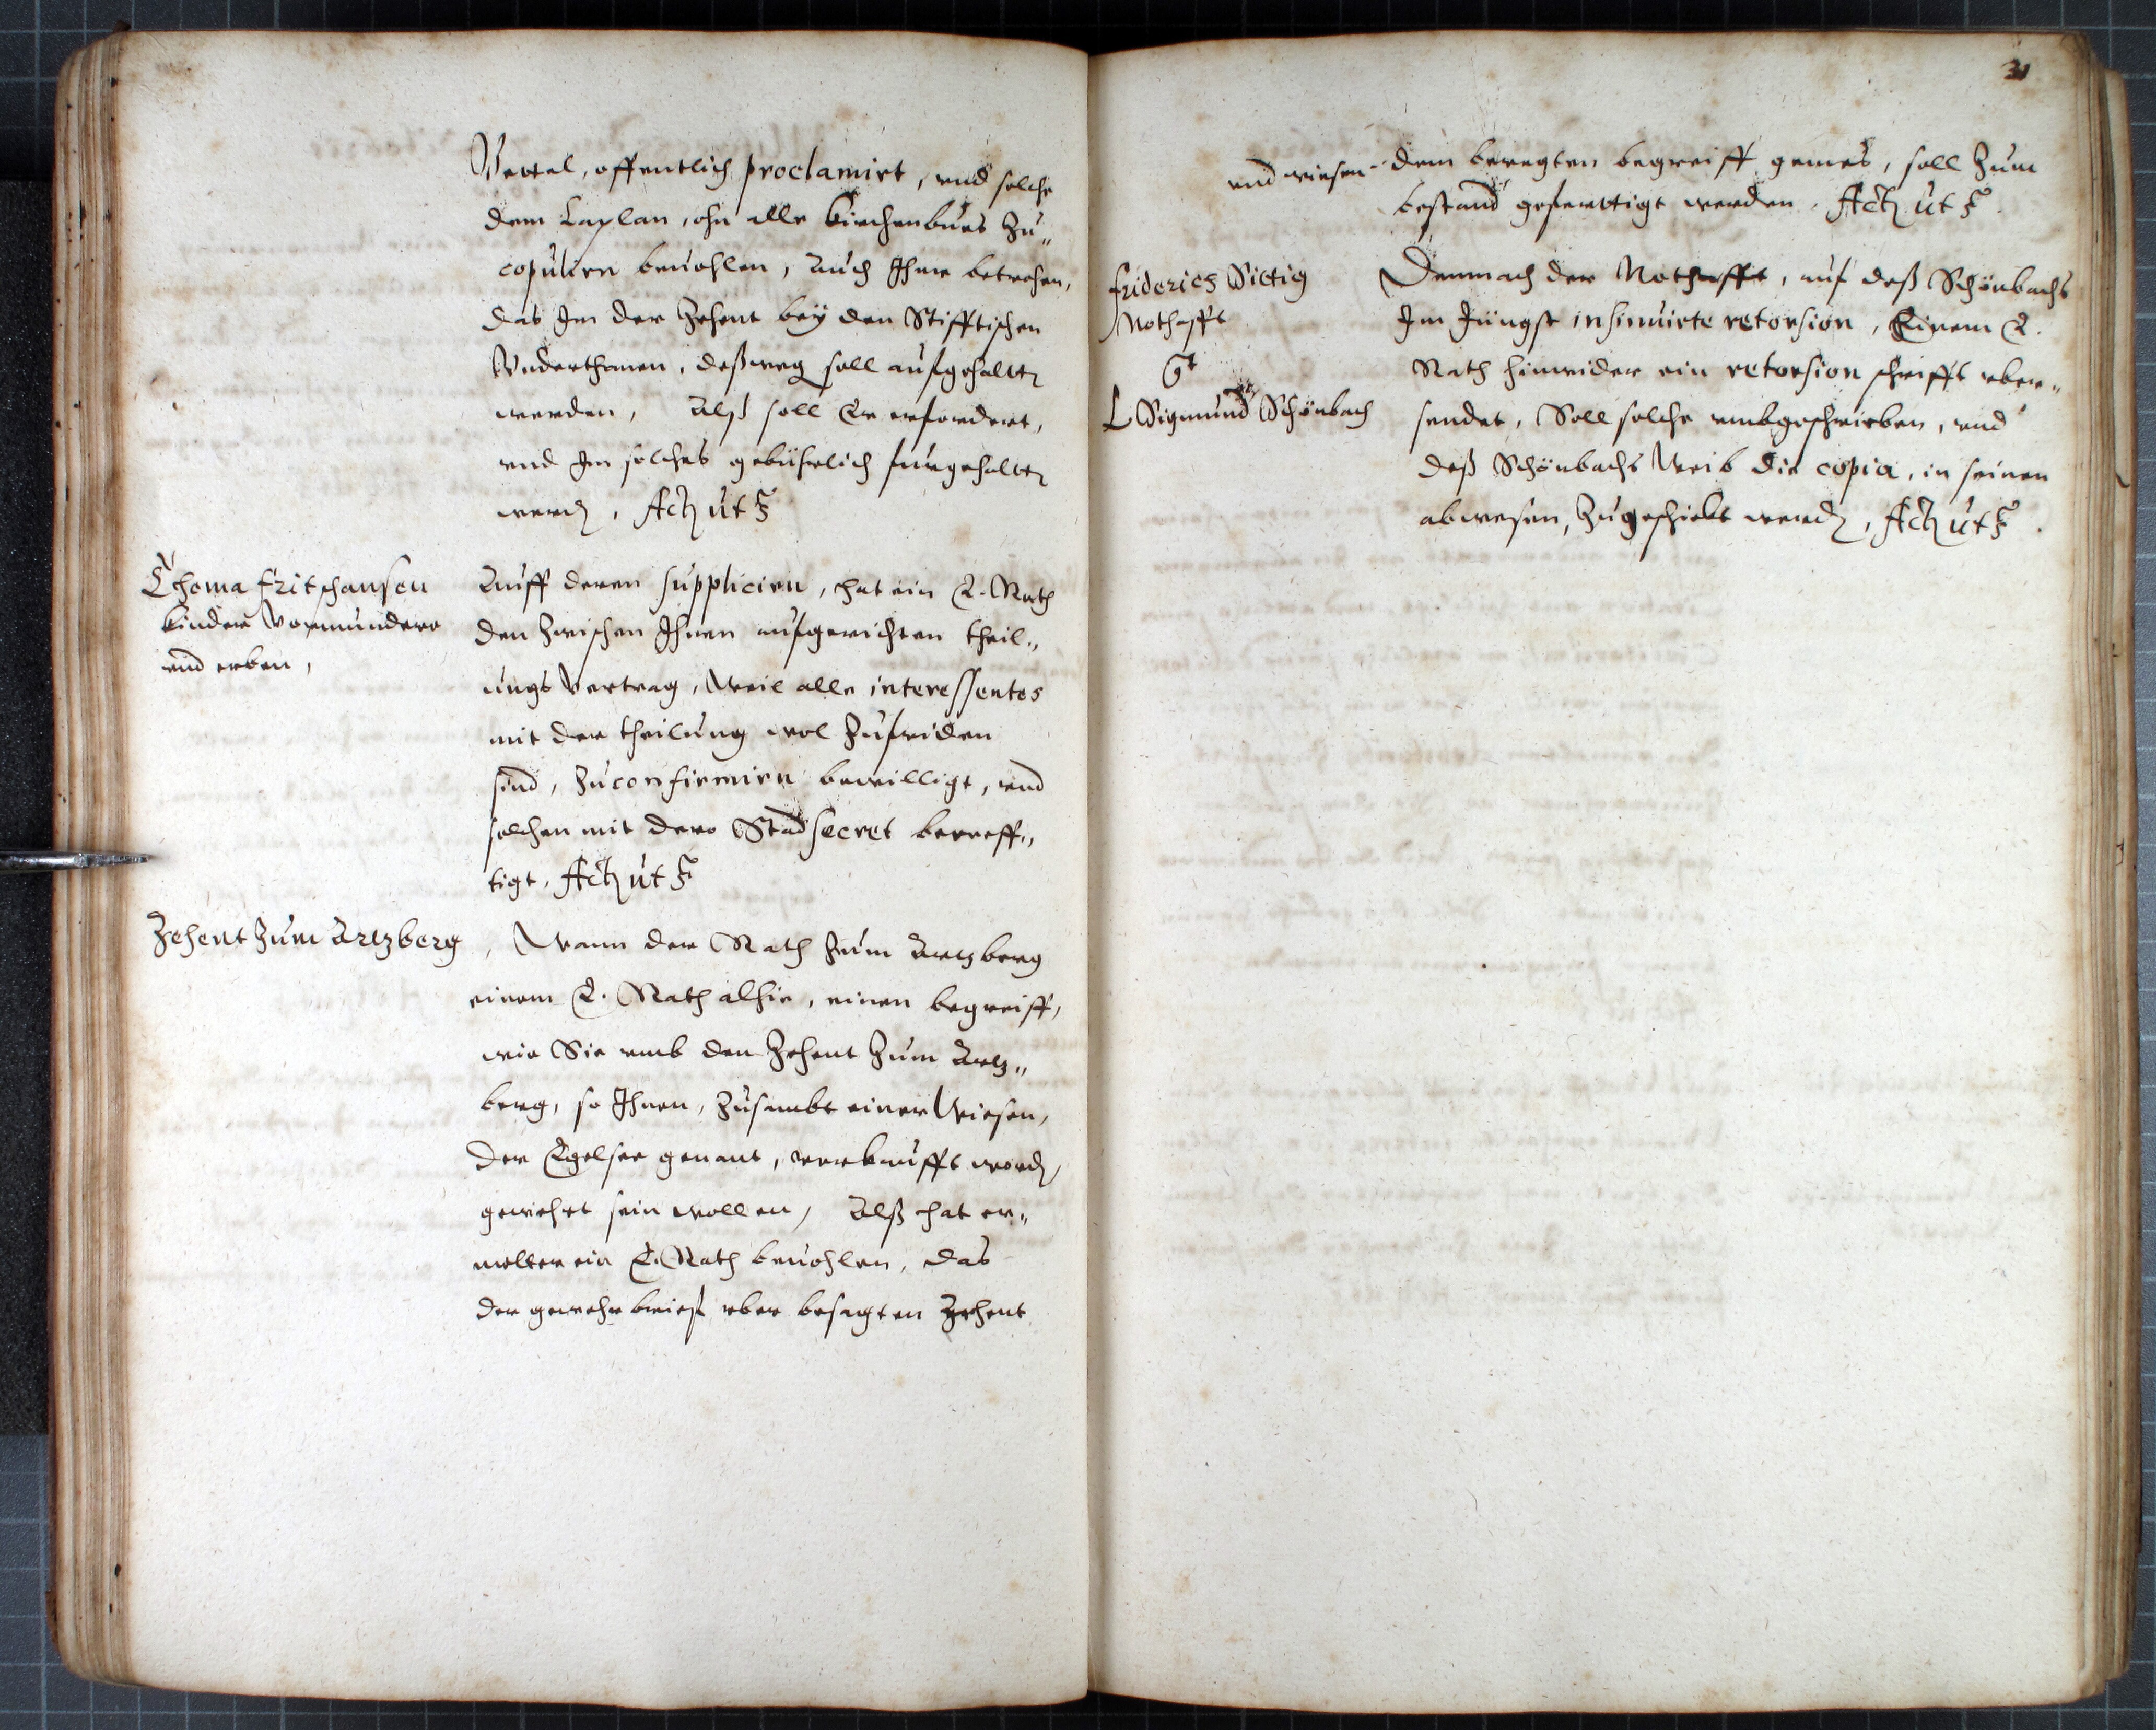 Vettel, offentlich proclamirt, vnd solche
dem Caplan, ohn alle kirchenbues Zu„
copulirn beuohlen, Auch Ihme betrohen,
das Im der Zehent bey den Stifftischen
Vnderthanen, deßweg soll aufgehalten
werden, Alß soll Er erfordert,
vnd Im solches gebührlich furgehalten
werdn, Actum ut s
Thoma Fritschansen
kinder Vormundere
vnd erben,
Auff deren supplicirn, hat ein E. Rath
den Zwischen Ihnen aufgerichten theil„
ungs Vertrag, Weil alle interessentes
mit der theilung wol Zufriden
sind, Zuconfirmirn bewilligt, vnd
solchen mit dero Stad secret becreff„
tigt. Actum ut s
Zehent Zum Artzberg
, Wann der Rath Zum Artzberg
einem E. Rath alhie, einen begreiff,
wie Sie vmb den Zehent Zum Artz„
berg, so Ihnen, Zusambt einer Wiesen,
der Egelsee genant, verkaufft wordn,
gewehrt sein wollen, Alß hat er„
melter ein E. Rath beuohlen, das
der gewehr brieff vber besagten Zehent
31
vnd wiesen dem beregten begreiff gemes, soll Zum
bestand gefertigt werden. Actum ut s.
Friderich Sittig
Nothafft
Ct
L Sigmund Schönbach
Demnach der Nothafft, auf deß Schönbachs
Im Jüngst insinuirte retorsion, Einem E.
Rath hinwider ein retorsion schrifft vber„
sendet, Soll solche vmbgeschrieben, vnd
deß Schönbachs Weib die copia, in seinen
abwesen, Zugeschickt werdn, Actum ut s.